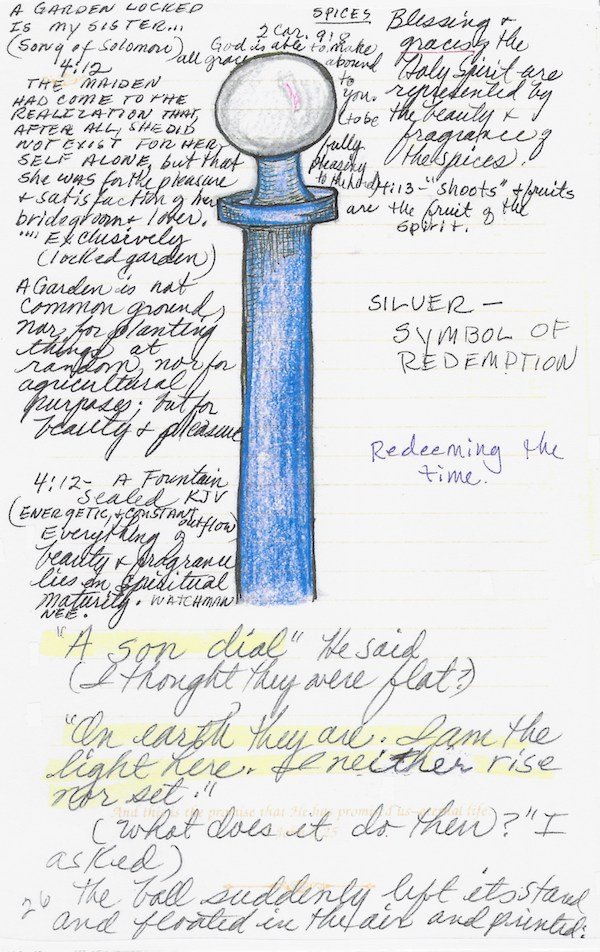 A GARDEN LOCKED
IS MY SISTER...
(Song of Solomon)
4:12
THE MAIDEN
HAD COME TO THE
REALIZATION THAT,
AFTER ALL, SHE DID
NOT EXIST FOR HER
SELF ALONE, but that
she was for the pleasure
& satisfaction of her
bridegroom & lover.
"" Exclusively
(locked garden)
A Garden is not
common ground,
nor for planting
things at
random, nor for
agricultural
purposes; but for
beauty & pleasure
4:12- A Fountain
Sealed KJV
(ENERGETIC, & CONSTANT
outflow)
Everything of
beauty & fragrance
lies in Spiritual
maturity. WATCHMAN
NEE.
2 Cor. 9:8
God is able to make
all grace abound
to
you.
to be
fully
pleasing
to the Lord
SPICES
Blessing &
graces of the
Holy Spirit are
represented by
the beauty &
fragrance of
the spices.
4:13-"shoots" & fruits
are the fruit of the
Spirit.
SILVER —
SYMBOL OF
REDEMPTION
Redeeming the
time.
"A son dial" He said
(I thought they were flat?)
"On earth they are. I am the
light here. I neither rise
nor set."
And this is the promise that He has promised us—eternal life
(What does it do then)?" I
asked)
26 The ball suddenly left its stand
and floated in the air and printed: